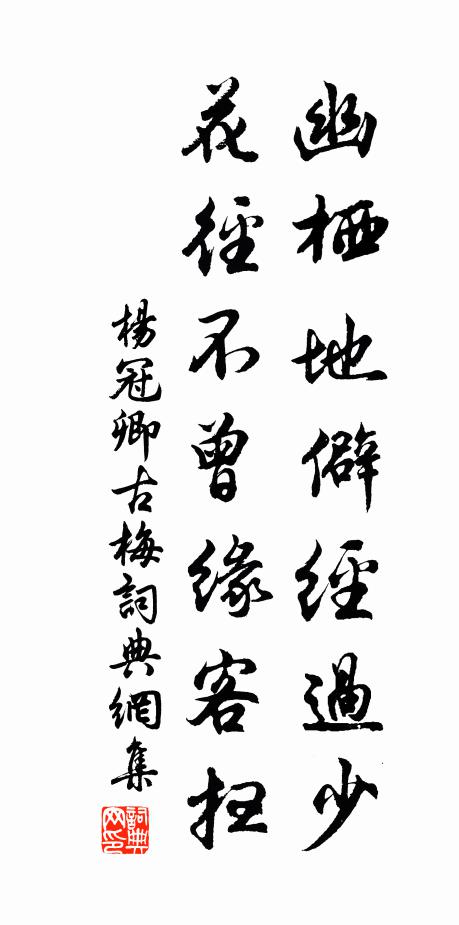 幽栖地僻經過少
花徑不曾緣客扫
楊冠卿古梅詞典網集
詞典网印